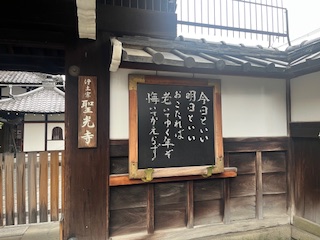 今日といい
明日といい
おこたれば
老いてゆく年ぞ
悔いかえらず
浄土宗
聖光寺